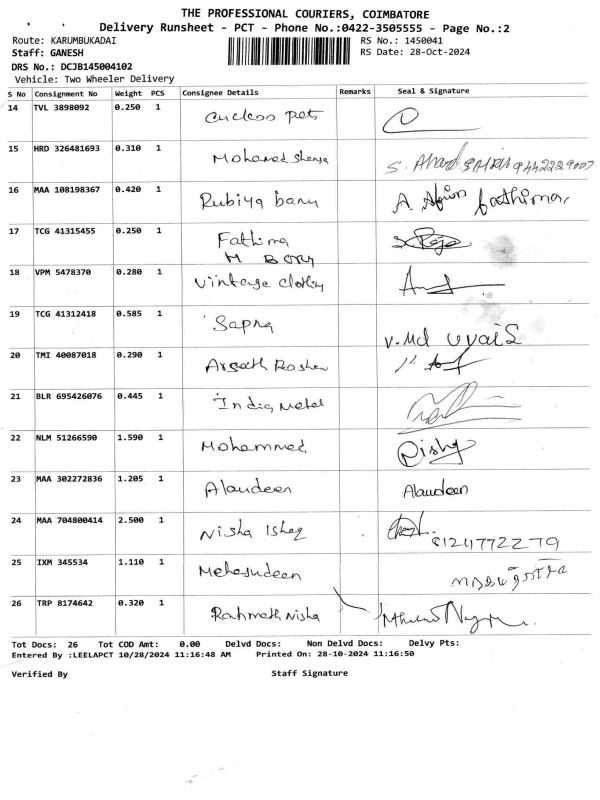 THE PROFESSIONAL COURIERS, COIMBATORE
Delivery Runsheet - PCT - Phone No.:0422-3505555 - Page No.:2
Route: KARUMBUKADAI RS No.: 1450041
Staff: GANESH RS Date: 28-Oct-2024
DRS No.: DCJB145004102
Vehicle: Two Wheeler Delivery
S No Consignment No Weight PCS Consignee Details Remarks Seal & Signature
14 TVL 3898092 0.250 1 pets
15 HRD 326481693 0.310 1 Mohamed 9442229007
16 MAA 108198367 0.420 1 Rubiya banu A. fathima
17 TCG 41315455 0.250 1 Fathima
18 VPM 5478370 0.280 1 Vintage
19 TCG 41312418 0.585 1 Sapna V.Md Uvais
20 TMI 40087018 0.290 1 Arseeth Roshan
21 BLR 695426076 0.445 1 India Metal
22 NLM 51266590 1.590 1 Mohammed
23 MAA 302272836 1.205 1 Alaudeen Alaudeen
24 MAA 704800414 2.500 1 Nisha 8124772279
25 IXM 345534 1.110 1
26 TRP 8174642 0.320 1 Rahmath Nisha
Tot Docs: 26 Tot COD Amt: 0.00 Delvd Docs: Non Delvd Docs: Delvy Pts:
Entered By :LEELAPCT 10/28/2024 11:16:48 AM Printed On: 28-10-2024 11:16:50
Verified By Staff Signature